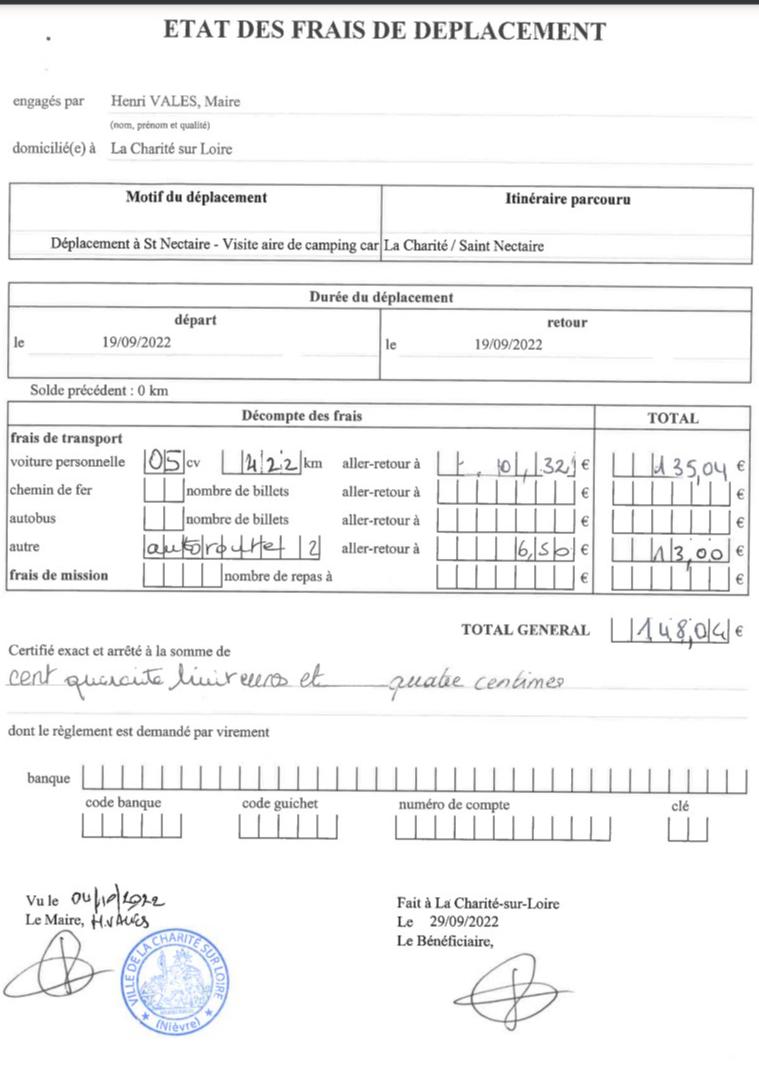 ETAT DES FRAIS DE DEPLACEMENT
engagés par Henri VALES, Maire
(nom, prénom et qualité)
domicilié(e) à La Charité sur Loire
Motif du déplacement Itinéraire parcouru
Déplacement à St Nectaire - Visite aire de camping car La Charité / Saint Nectaire
Durée du déplacement
départ retour
le 19/09/2022 le 19/09/2022
Solde précédent : 0 km
Décompte des frais TOTAL
frais de transport
voiture personnelle 05 cv 422 km aller-retour à 0,32 € 135,04 €
chemin de fer nombre de billets aller-retour à € €
autobus nombre de billets aller-retour à € €
autre autoroute 2 aller-retour à 6,50 € 13,00 €
frais de mission nombre de repas à € €
TOTAL GENERAL 148,04 €
Certifié exact et arrêté à la somme de
cent quarante huit euros et quatre centimes
dont le règlement est demandé par virement
banque
code banque code guichet numéro de compte clé
Vu le 04/10/2022
Le Maire, H. VALES
VILLE DE LA CHARITÉ SUR LOIRE
(Nièvre)
Fait à La Charité-sur-Loire
Le 29/09/2022
Le Bénéficiaire,